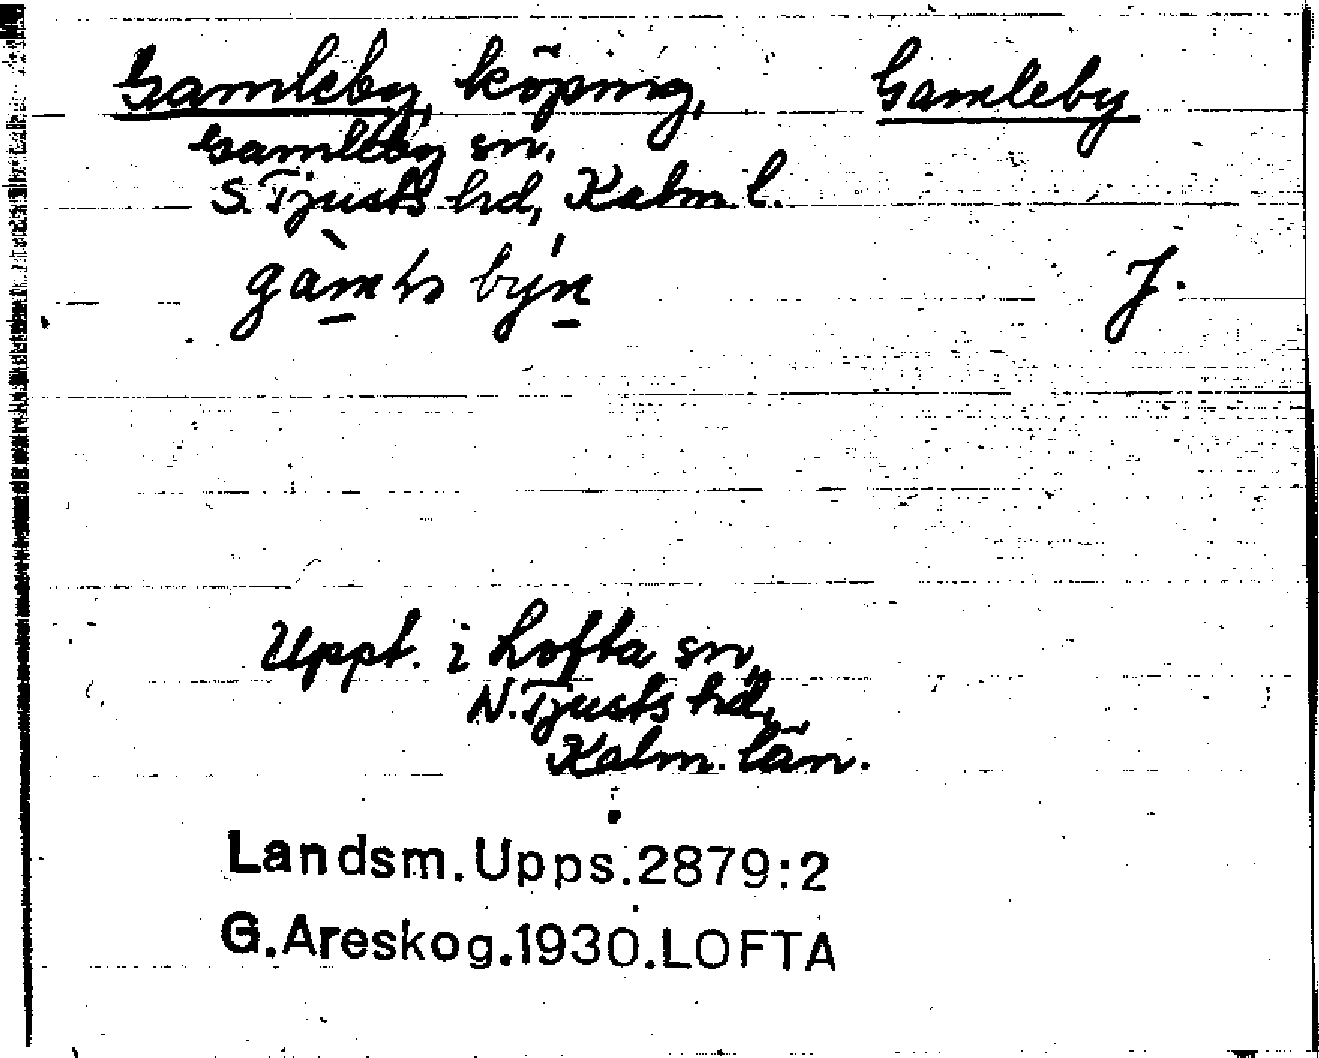 Gamleby, köping, Gamleby
Gamleby sn.
S. Tjusts hd, Kalm l.
J.
Uppt. i Lofta sn,
N. Tjusts hd,
Kalm. län.
Landsm. Upps. 2879:2
G. Areskog. 1930. LOFTA